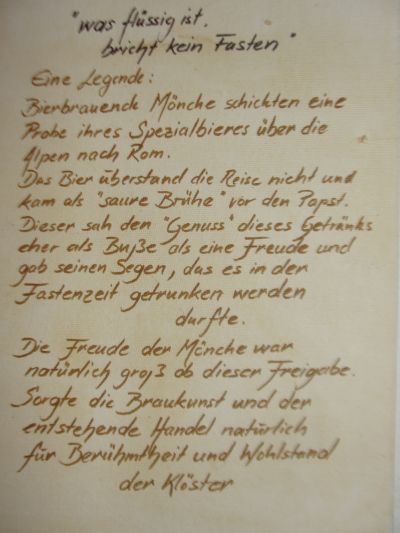 "was flüssig ist,
bricht kein Fasten"
Eine Legende:
Bierbrauende Mönche schickten eine
Probe ihres Spezialbieres über die
Alpen nach Rom.
Das Bier überstand die Reise nicht und
kam als "saure Brühe" vor den Papst.
Dieser sah den "Genuss" dieses Getränks
eher als Buße als eine Freude und
gab seinen Segen, das es in der
Fastenzeit getrunken werden
durfte.
Die Freude der Mönche war
natürlich groß ob dieser Freigabe.
Sorgte die Braukunst und der
entstehende Handel natürlich
für Berühmtheit und Wohlstand
der Klöster